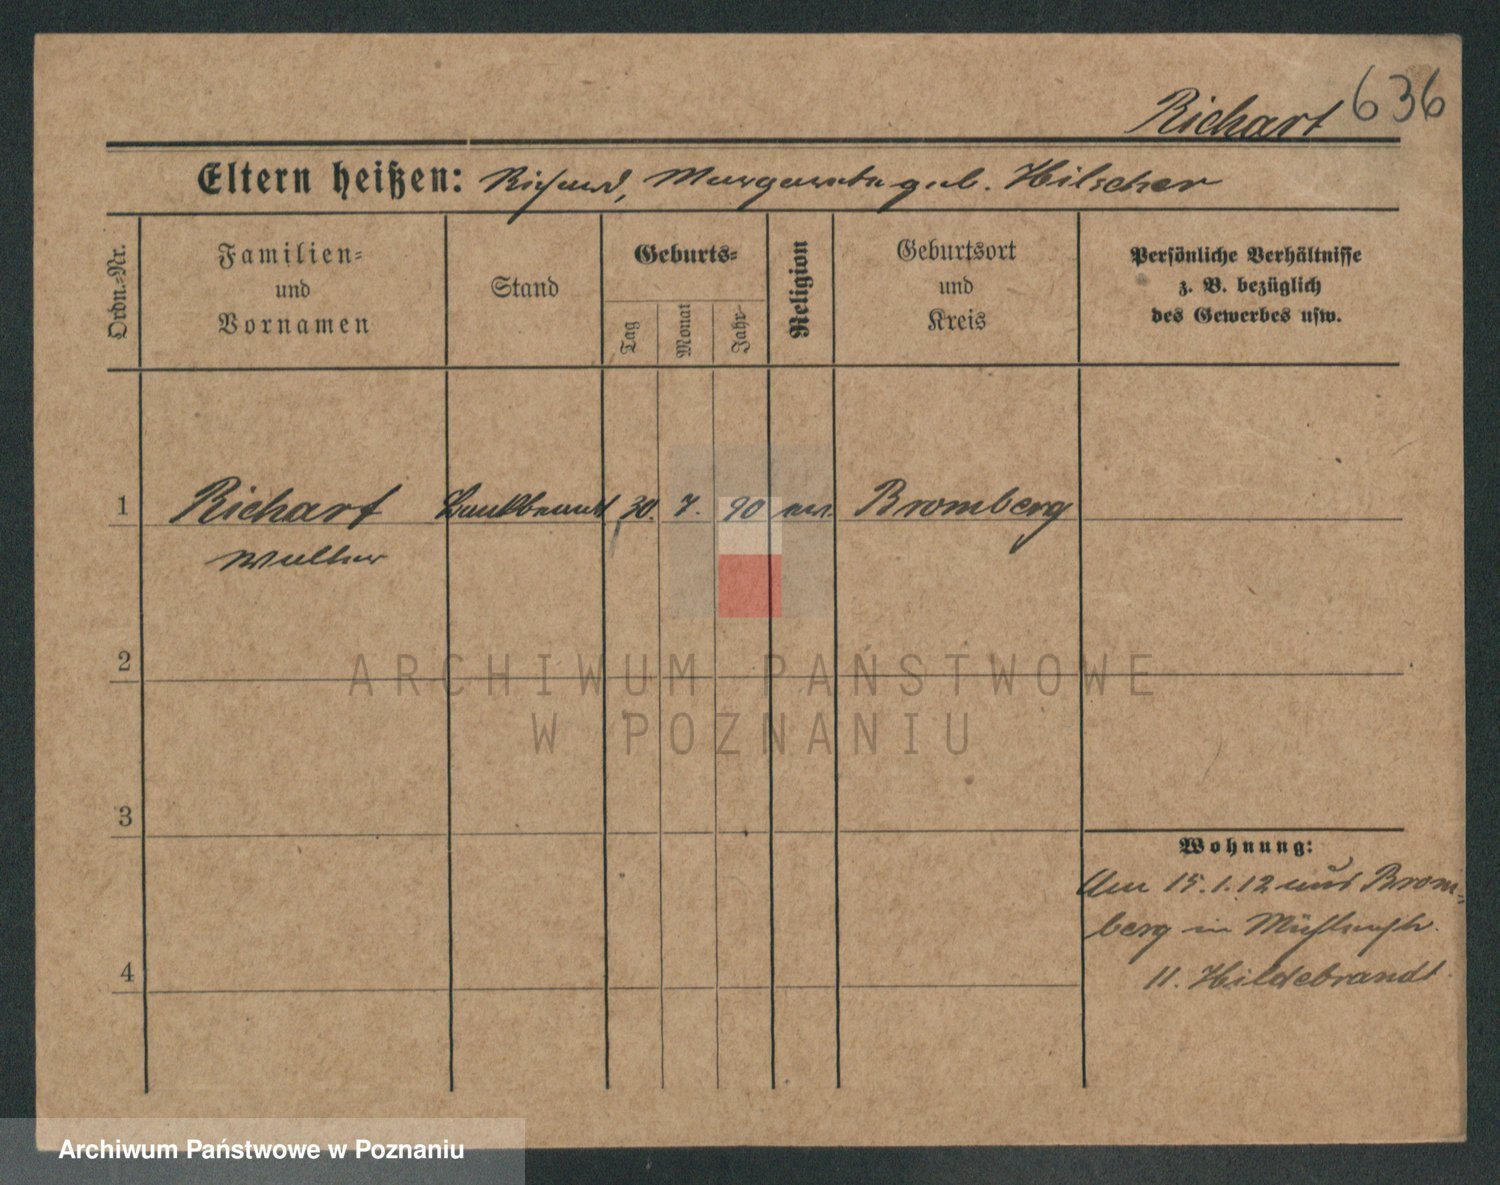 Richart 636
Eltern heißen: Richard, Margarete geb. Hilscher
Ordn.-Nr.
Familien-
und
Vornamen
Stand
Geburts-
Tag
Monat
Jahr-
Religion
Geburtsort
und
Kreis
Persönliche Verhältnisse
z. B. bezüglich
des Gewerbes usw.
1 Richart Bankbeamt 30. 7. 90 ev. Bromberg
Walther
2
3
4
Wohnung:
Am 15.1.12 aus Brom-
berg in Mühlenstr.
11. Hildebrandt
ARCHIWUM PAŃSTWOWE
W POZNANIU
Archiwum Państwowe w Poznaniu